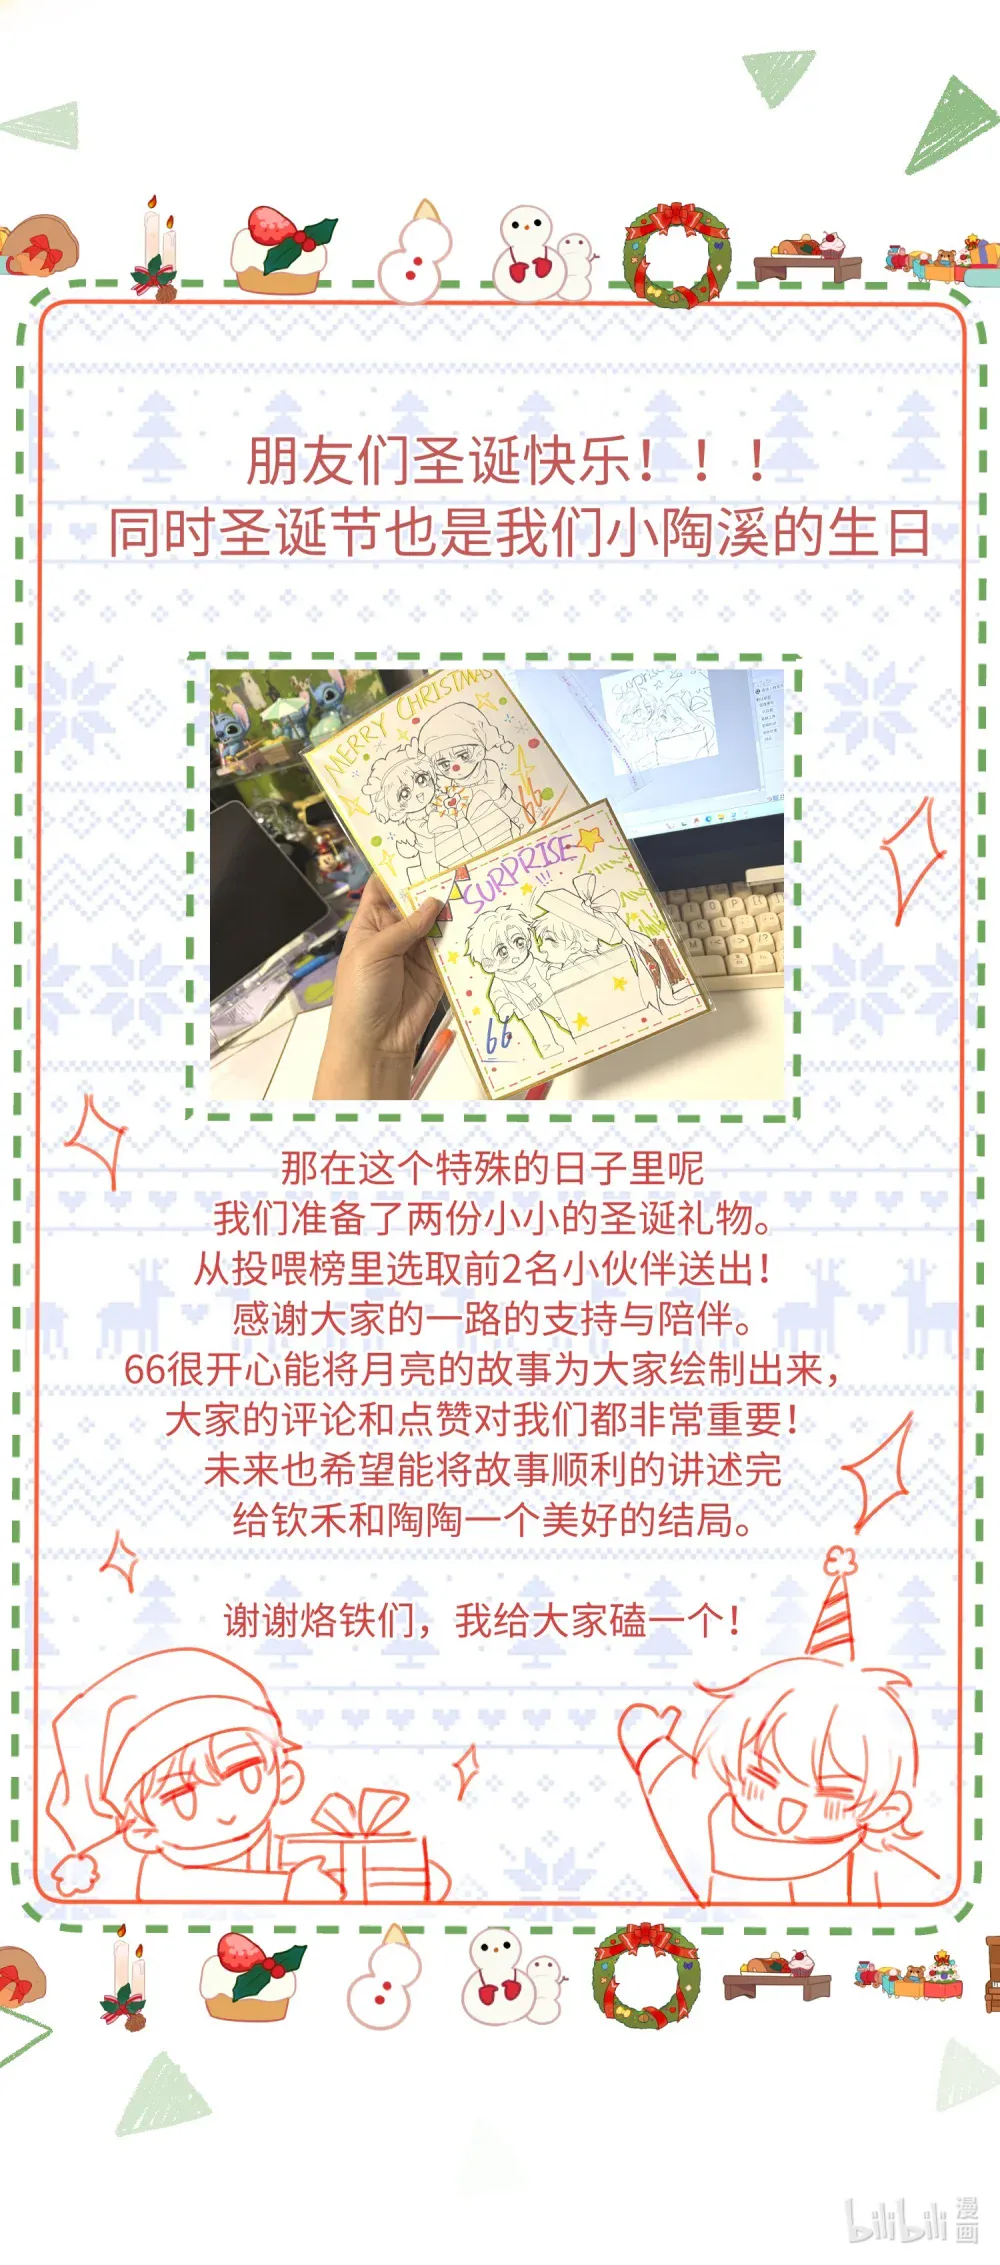 朋友们圣诞快乐！！！
同时圣诞节也是我们小陶溪的生日
MERRY CHRISTMAS
66
SURPRISE
!!!
66
那在这个特殊的日子里呢
我们准备了两份小小的圣诞礼物。
从投喂榜里选取前2名小伙伴送出！
感谢大家的一路的支持与陪伴。
66很开心能将月亮的故事为大家绘制出来，
大家的评论和点赞对我们都非常重要！
未来也希望能将故事顺利的讲述完
给钦禾和陶陶一个美好的结局。
谢谢烙铁们，我给大家磕一个！
bilibili 漫画